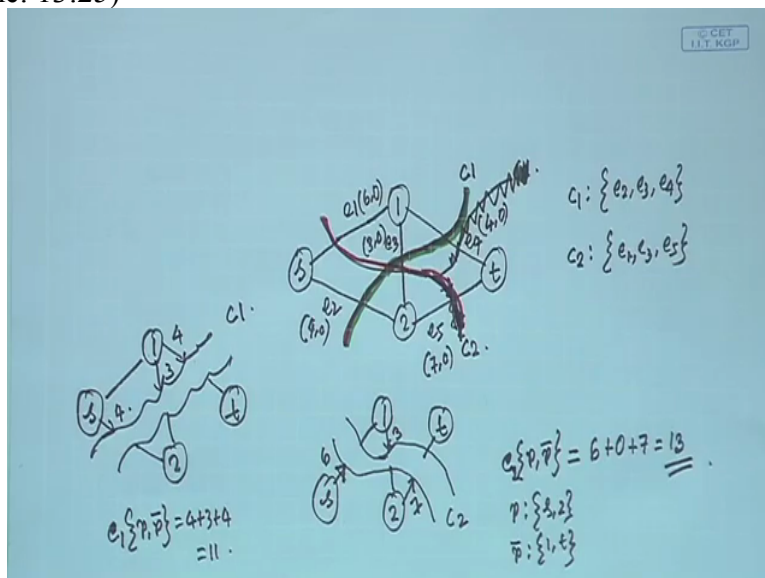 © CET
I.I.T. KGP
C1
e1(6,0)
1
(3,0)e3
e4(4,0)
s
t
e2
(4,0)
2
e5
(7,0)
C2.
c1: {e2, e3, e4}
c2: {e1, e3, e5}
C1.
1
4
3
s
4.
t
2
c1{p, p̄} = 4+3+4
=11.
1
t
3
6
s
2
7
C2
c2{p, p̄} = 6+0+7 = 13.
p: {s,2}
p̄: {1,t}